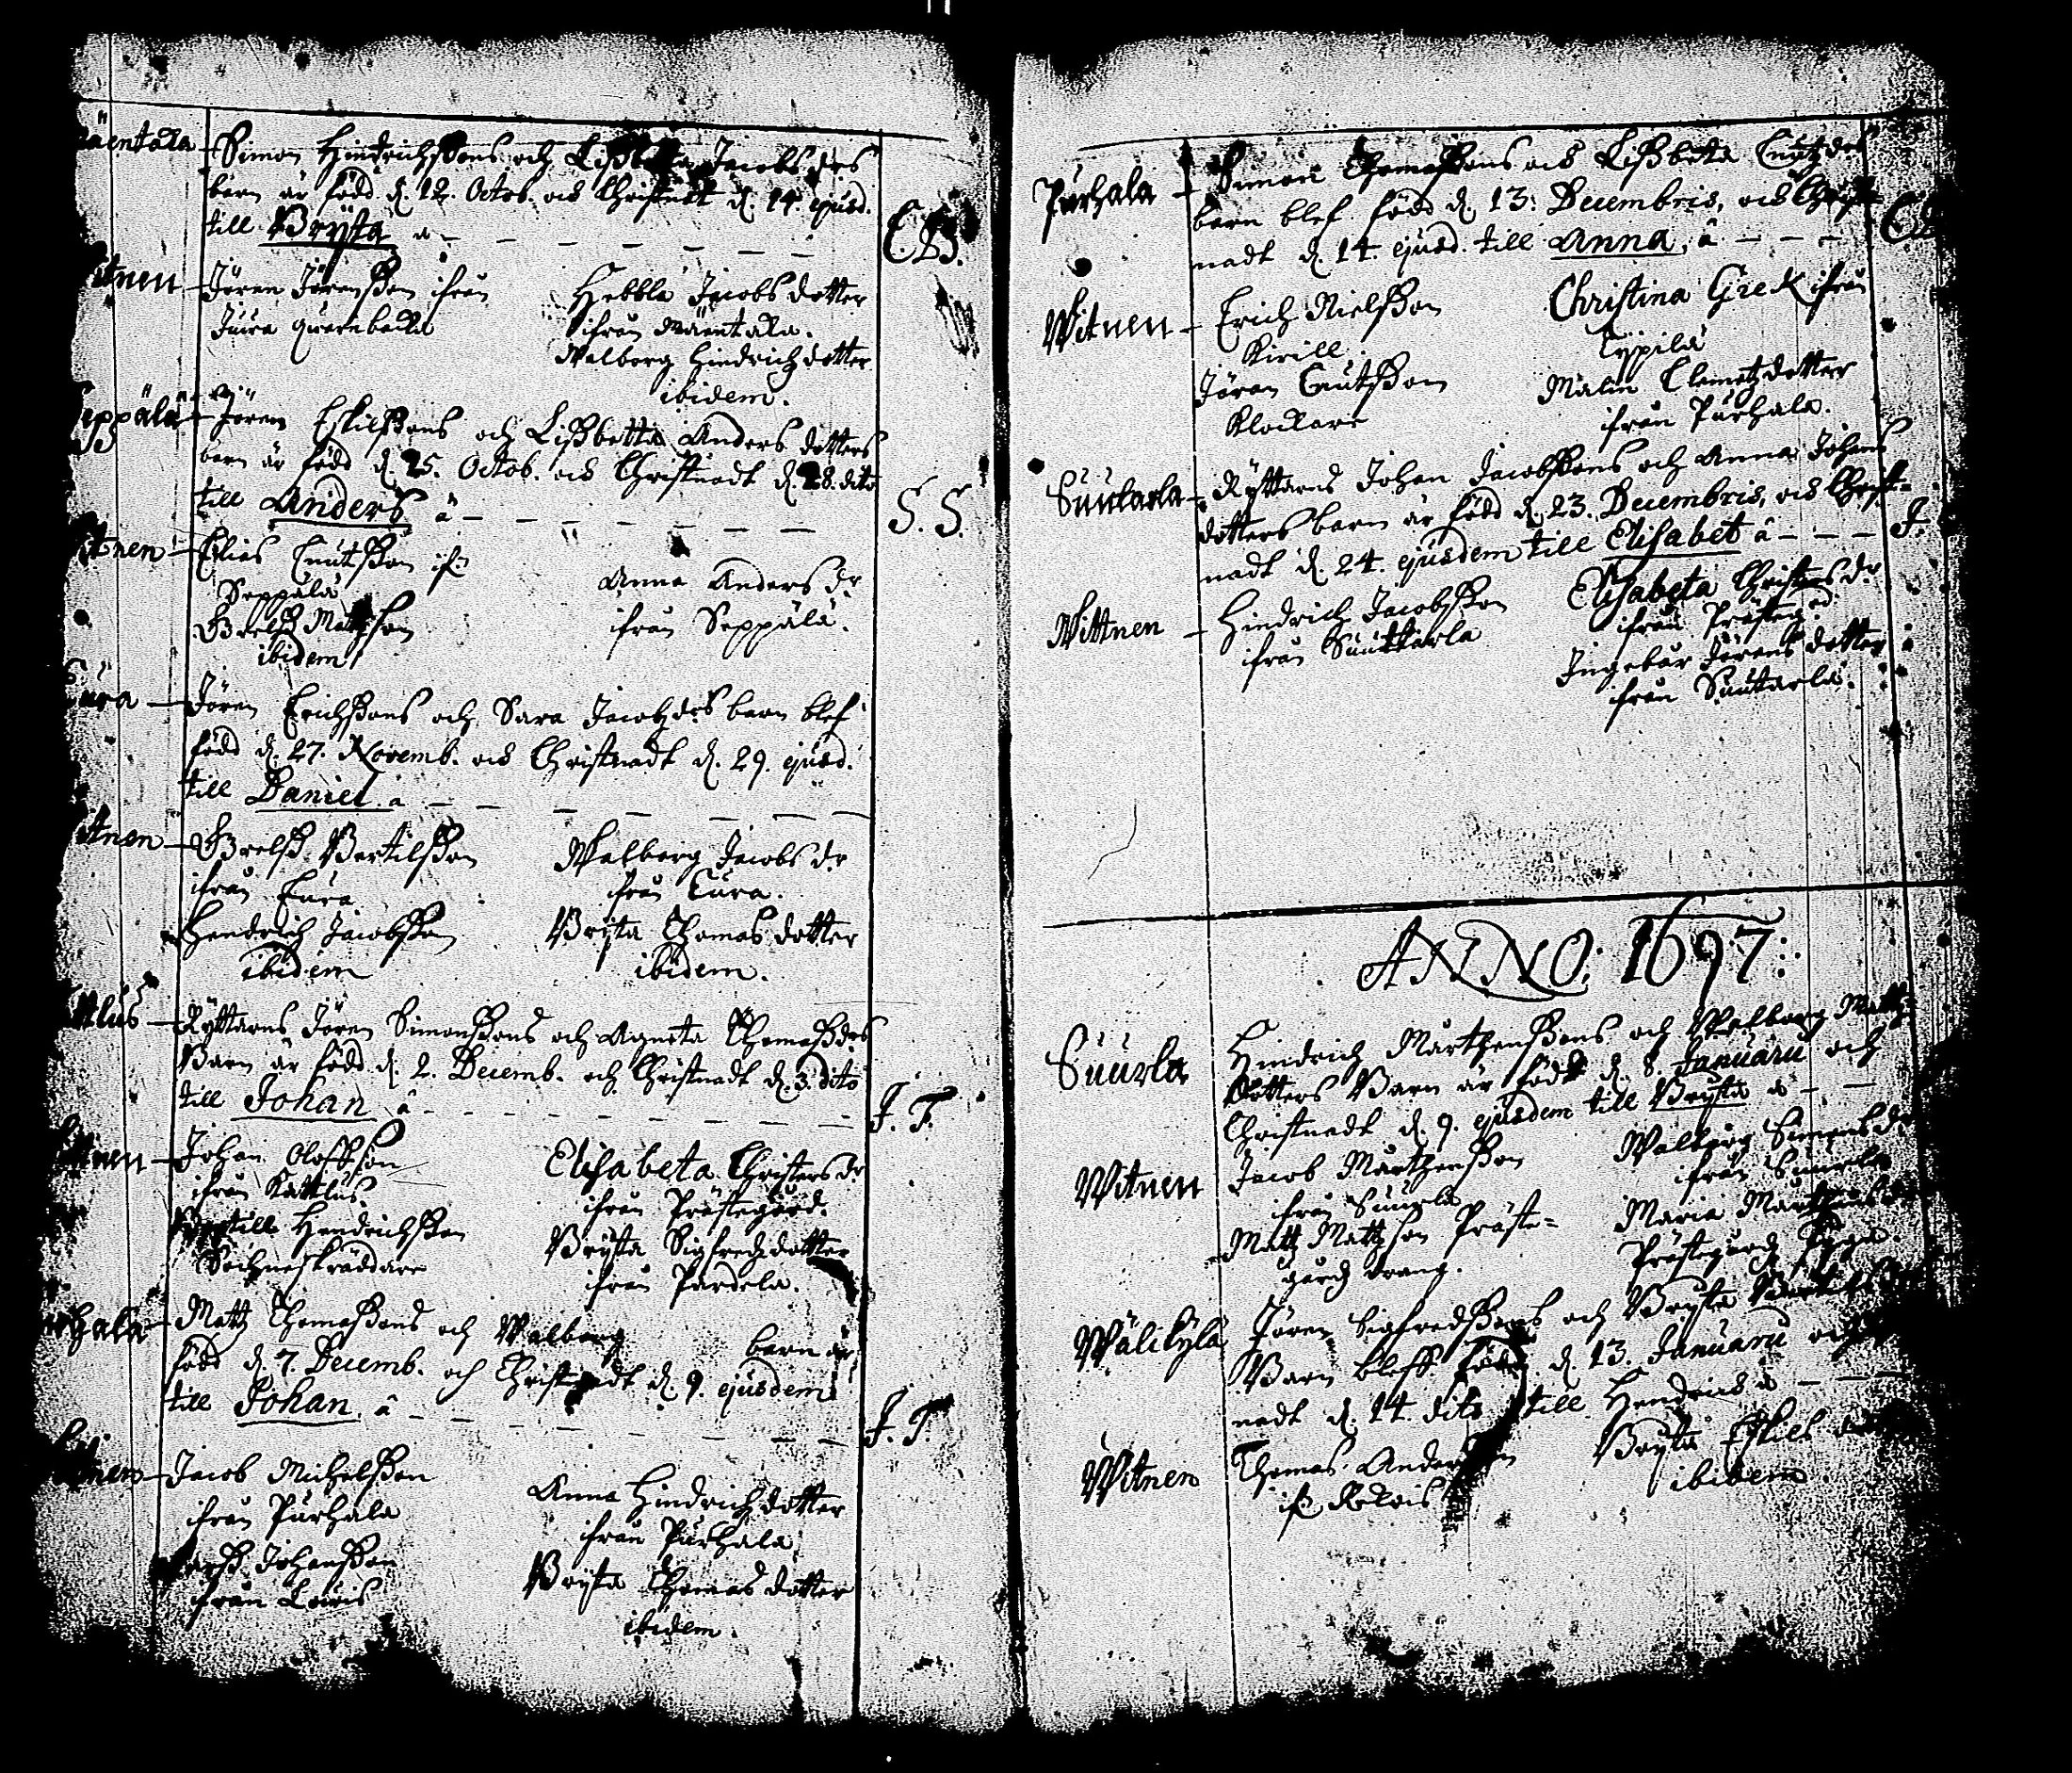 Simon Hindrichßons och Lißbetta Jacobs drs
barn är född d. 12. Octob. och Christnadt d. 14. ejusd.
till Brÿta a
C B.
Jören Jörenßon ifrån
Juva quarnbacka
Hebbla Jacobs dotter
ifrån
Walborg Hindrichz dotter
ibidem.
Seppälä Jören Eskilßons och Lißbetta Anders dotters
barn är född d. 25. Octob. och Christnadt d. 28. dito
till Anders ä
S. S.
Elies Cnutßon if:
Seppälä
Brelß Mattßon
ibidem
Anna Anders dr
ifrån Seppälä.
Jören Erichßons och Sara Jacobz drs barn blef
född d. 27. Novemb. och Christnadt d. 29. ejusd.
till Daniel a
Brelß Bertilßon
ifrån Eura
Hendrich Jacobßon
ibidem
Walborg Jacobs dr
ifrån Eura.
Brita Thomas dotter
ibidem.
Rÿttarns Jören Simonßons och Agneta Thomaß drs
Barn är född d. 2. Decemb. och Christnadt d. 3. dito
till Johan ä
J. T.
Johan Oloffson
ifrån Kattlus
Bertill Hendrichßon
Sochneskräddare
Elisabeta Christers dr
ifrån Prästegård.
Brÿta Sigfredz dotter
ifrån Pardela.
Matz Thomaßons och Walborg barn är
född d. 7. Decemb. och Christnadt d. 9. ejusdem
till Johan ä
J. T.
Jacob Michelßon
ifrån Pürhala
Johanßon
ifrån Lauris
Anna Hindrichz dotter
ifrån Pürhala
Brÿta Thomas dotter
ibidem.
Pürhala Simon Thomaßons och Lißbeta Cnutz drs
barn blef född d. 13: Decembris, och Christ
nadt d. 14. ejusd. till Anna, ä
Witnen Erich Nielßon
Kirill.
Jören Cnutßon
Klockare
Christina Grek ifrån
Cÿpilä
Malin Clemetz dotter
ifrån Pürhala.
Suutarla Rÿttarns Johan Jacobßons och Anna Johans
dotters barn är född d. 23. Decembris, och Christ=
nadt d. 24. ejusdem till Elisabet ä
J.
Wittnen Hindrich Jacobßon
ifrån Suuttarla
Elisabeta Christers dr
ifrån Prästegd.
Ingebår Jörens dotter
ifrån Suutarla.
ANNO: 1697:
Suurla Hindrich Märtzenßons och Walborg Matz=
dotters Barn är född d. 8. Januarii och
Christnadt d. 9. ejusdem till Brÿta ä
Witnen Jacob Mårtzenßon
ifrån Suurla
Matz Matzson Präste=
gårdz dräng.
Walborg Simons dr
ifrån Suurla
Maria Mårtzens
Prästegårdz Piga.
Wälikÿlä Jören Sigfredßons och Brÿta
Barn bleff född d. 13. Januarii
nadt d. 14. dito till Hendrich ä
Witnen Thomas Anderßon
if:
Brÿta Eskils
ibidem.